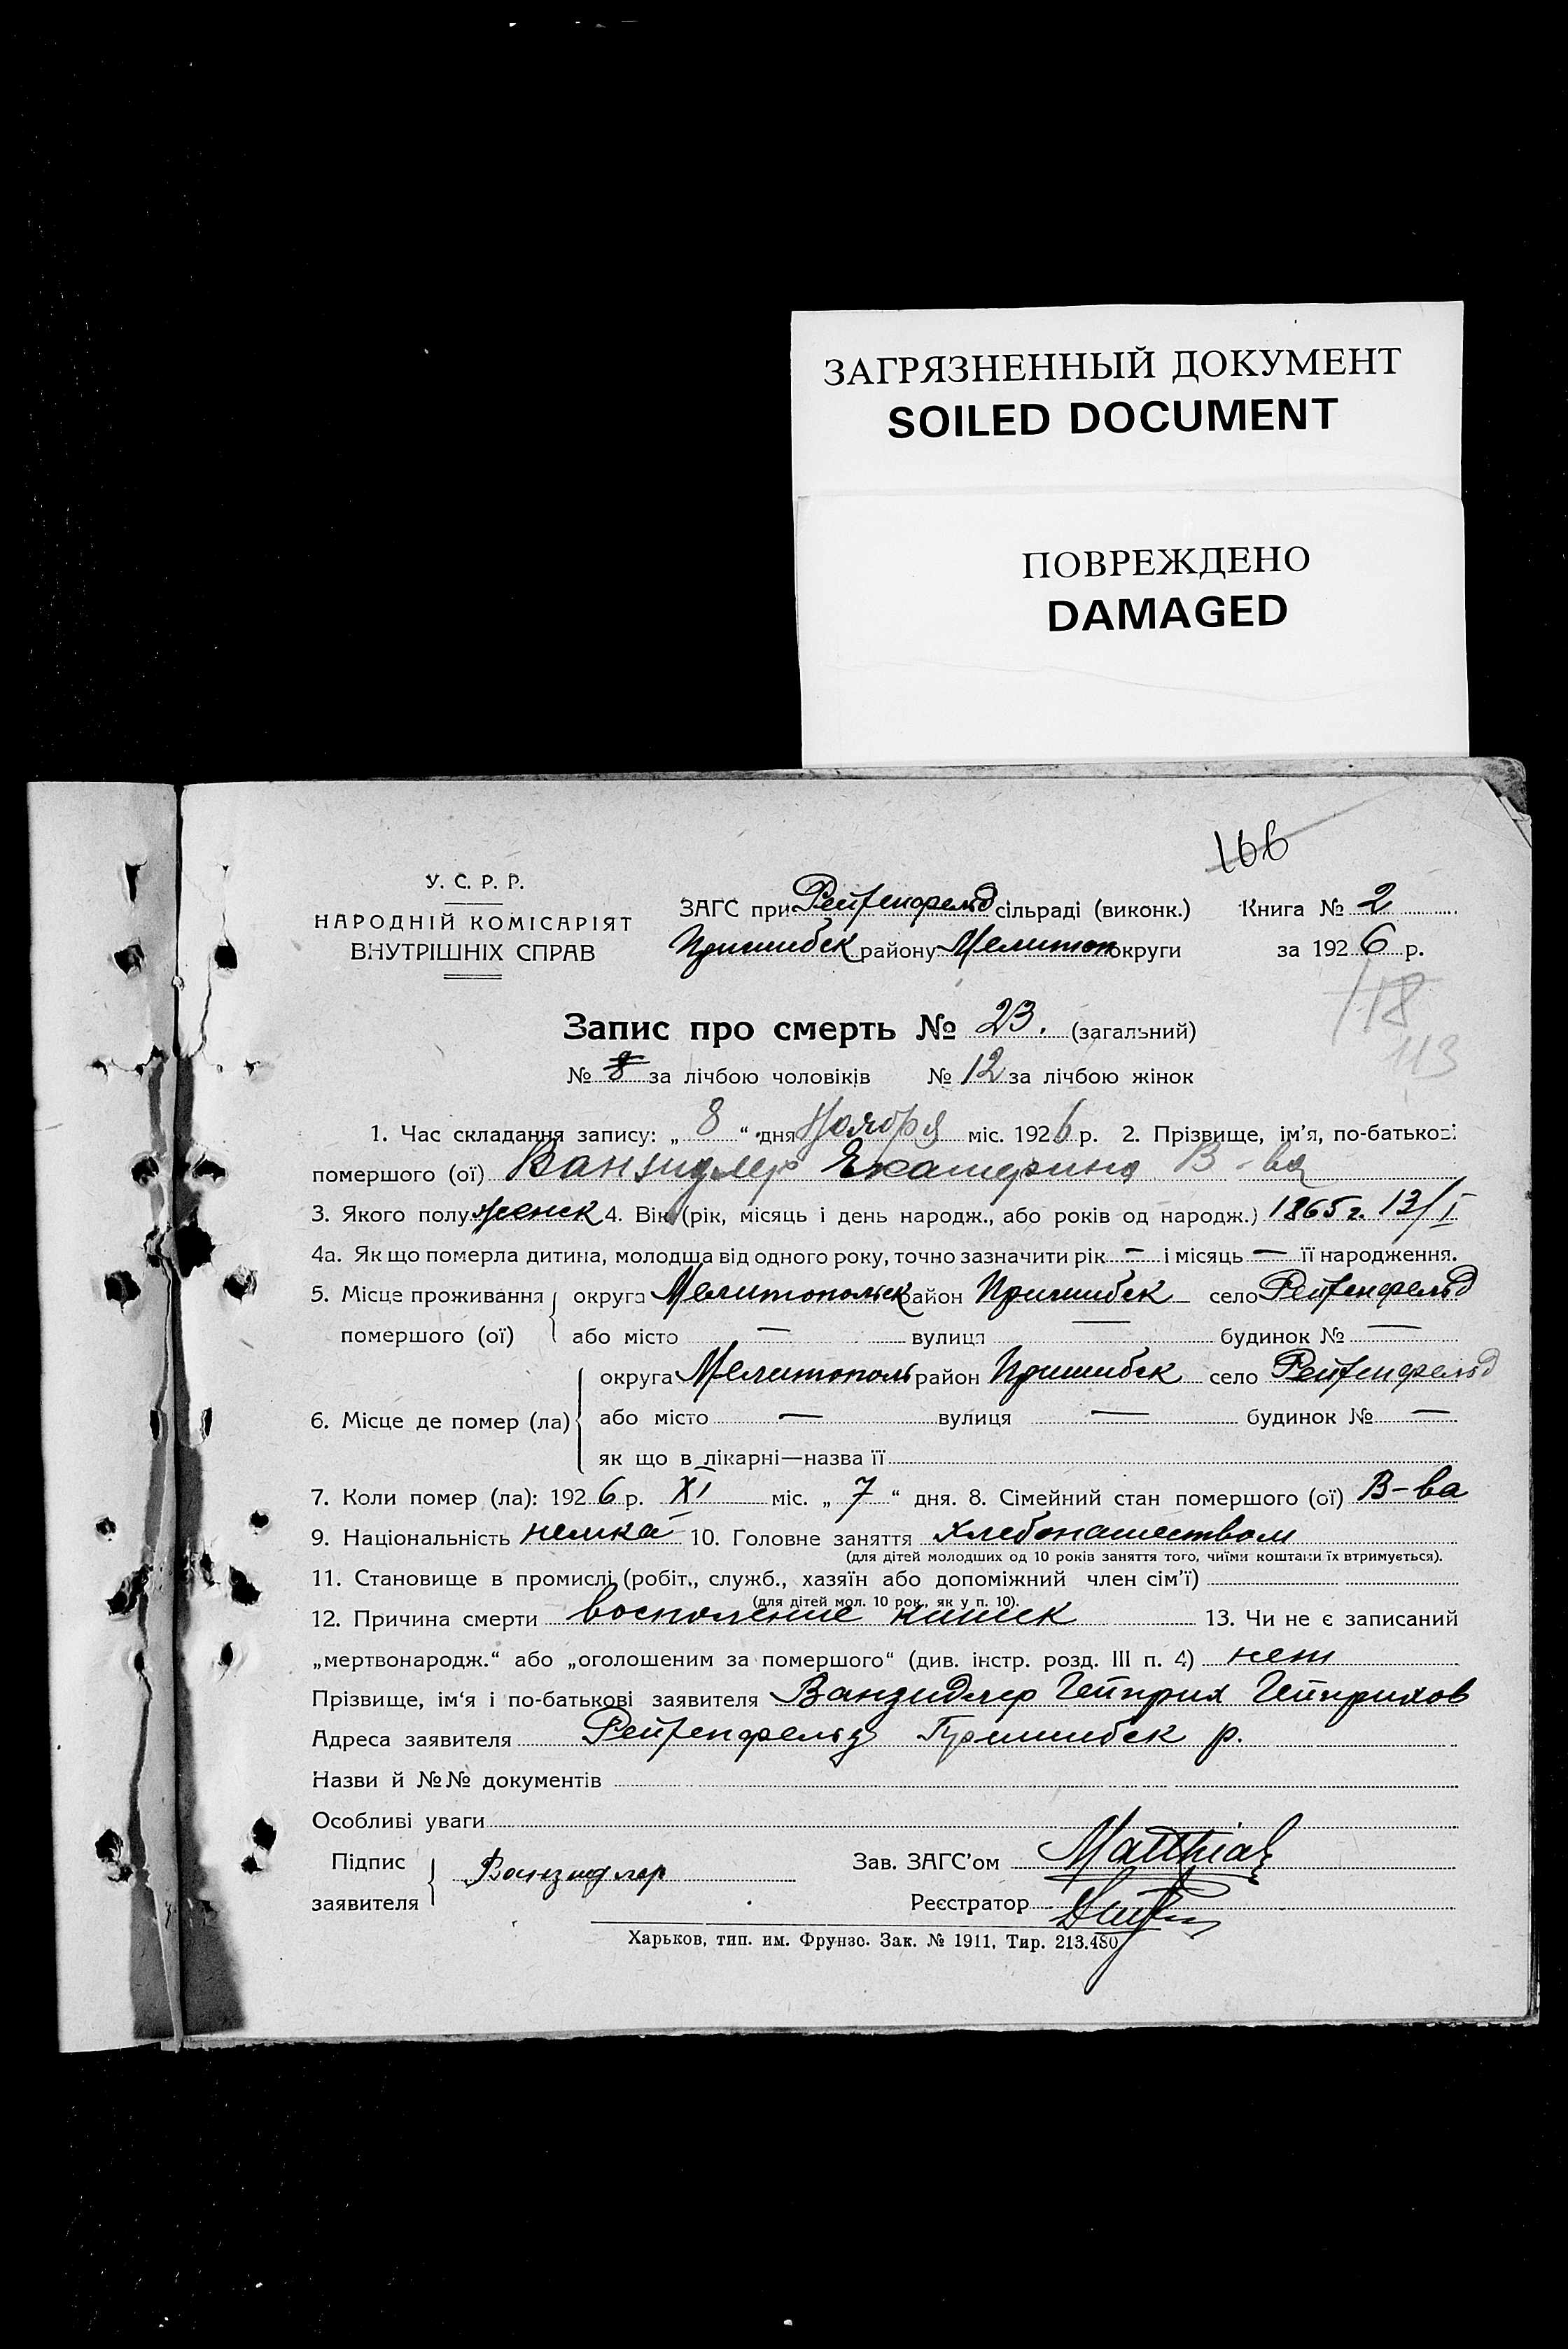 ЗАГРЯЗНЕННЫЙ ДОКУМЕНТ
SOILED DOCUMENT
ПОВРЕЖДЕНО
DAMAGED
166
У. С. Р. Р.
НАРОДНІЙ КОМІСАРІЯТ
ВНУТРІШНІХ СПРАВ
ЗАГС при Рейхенфельд сільраді (виконк.) Книга № 2
Пришибск району Мелитоп округи за 1926 р.
118
113
Запис про смерть № 23. (загальний)
№ 8 за лічбою чоловіків № 12 за лічбою жінок
1. Час складання запису: „ 8 “ дня Ноября міс. 1926 р. 2. Прізвище, ім’я, по-батькові
помершого (ої) Ванзидлер Екатерина В-ва
3. Якого полу женск 4. Вік (рік, місяць і день народж., або років од народж.) 1865 г. 13/I
4а. Як що померла дитина, молодша від одного року, точно зазначити рік — і місяць — її народження.
5. Місце проживання округа Мелитопольск район Пришибск село Рейхенфельд
помершого (ої) або місто — вулиця — будинок № —
округа Мелитополь район Пришибск село Рейхенфельд
6. Місце де помер (ла) або місто — вулиця — будинок № —
як що в лікарні—назва її
7. Коли помер (ла): 1926 р. XI міс. „ 7 “ дня. 8. Сімейний стан помершого (ої) В-ва
9. Національність немка 10. Головне заняття хлебопашеством
(для дітей молодших од 10 років заняття того, чиїми коштами їх втримується).
11. Становище в промислі (робіт., служб., хазяїн або допоміжний член сім’ї)
(для дітей мол. 10 рок., як у п. 10).
12. Причина смерти восполение кишек 13. Чи не є записаний
„мертвонародж.“ або „оголошеним за помершого“ (див. інстр. розд. III п. 4) нет
Прізвище, ім‘я і по-батькові заявителя Ванзидлер Гейнрих Гейнрихов
Адреса заявителя Рейхенфельд Пришибск р.
Назви й №№ документів
Особливі уваги
Підпис Ванзидлер Зав. ЗАГС’ом Matthias
заявителя Реєстратор
Харьков, тип. им. Фрунзе. Зак. № 1911, Тир. 213.480